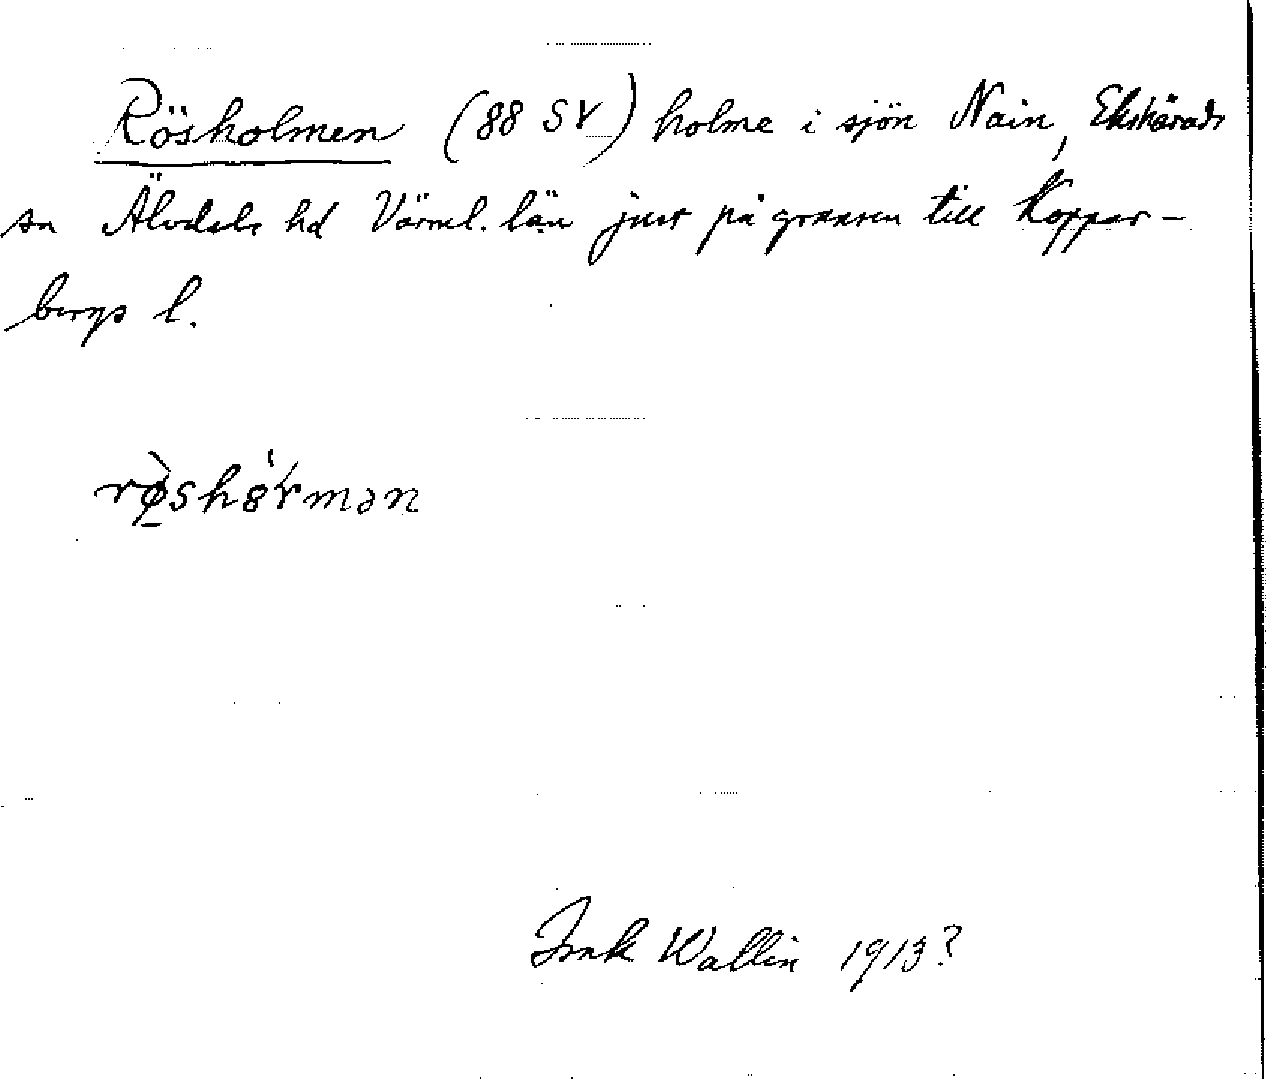 Rösholmen (88 SV) holme i sjön Nain, Ekshärads
sn Älvdals hd Värml. län just på gränsen till Koppar-
bergs l.
Wallin 1913?